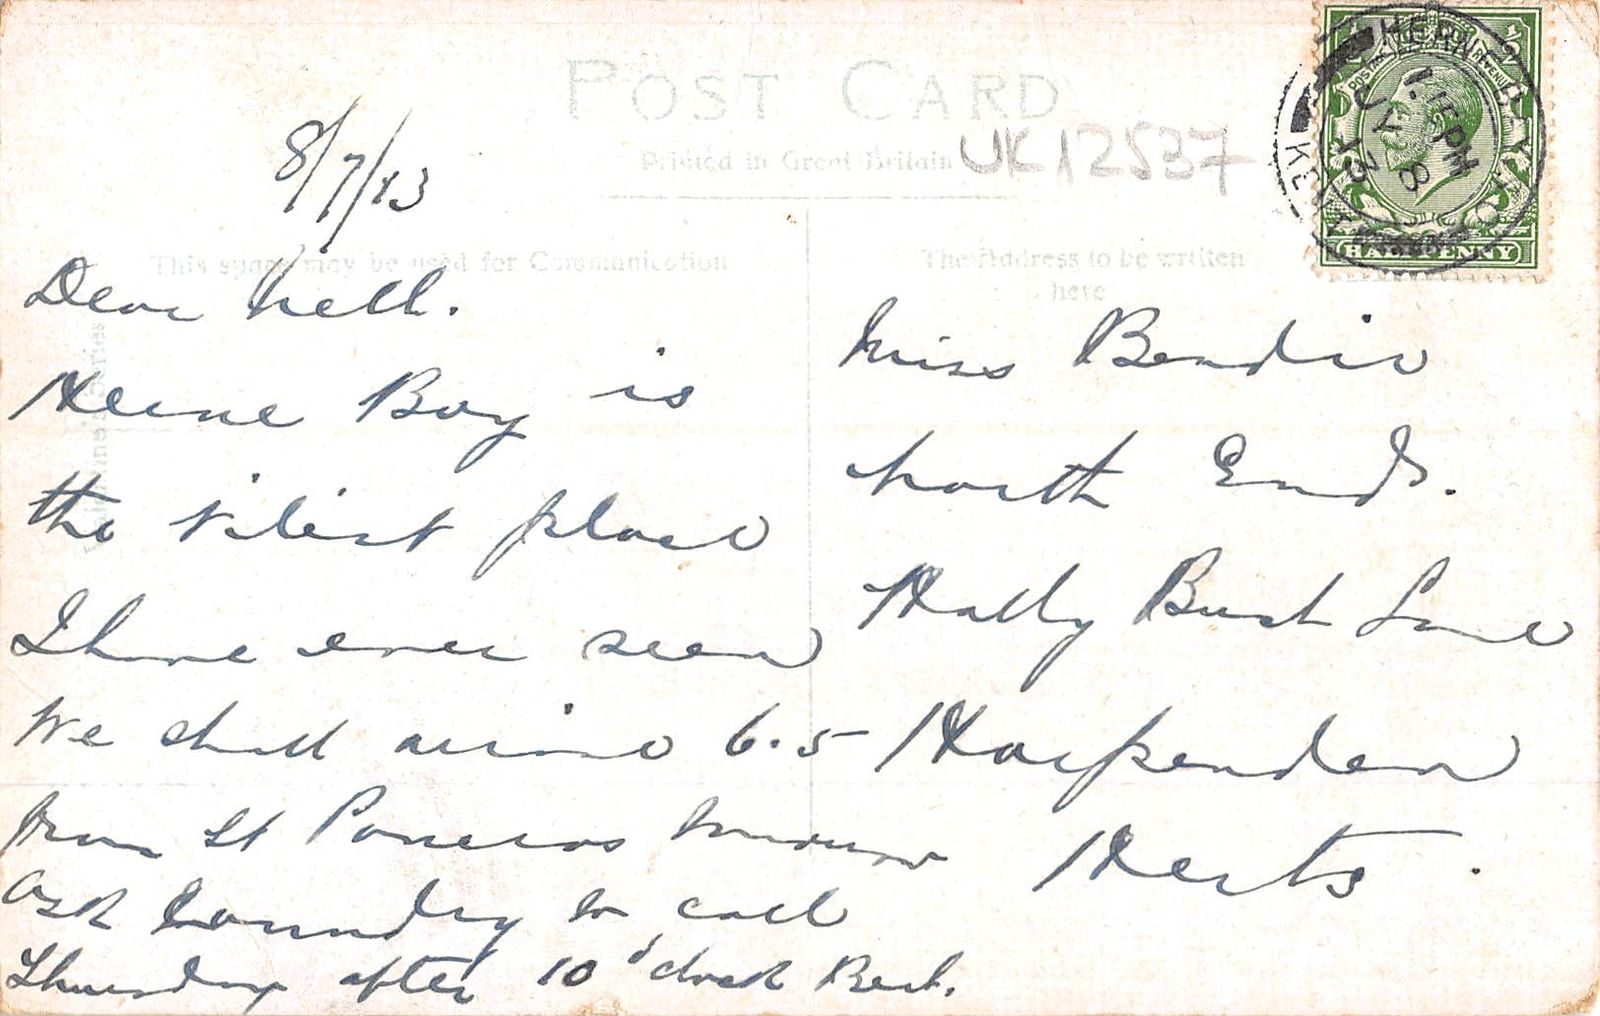 POST CARD
Printed in Great Britain
UK12537
HERNE BAY
1.15PM
JY 8
13
KENT
POSTAGE REVENUE
HALFPENNY
8/7/13
This space may be used for Communication
The Address to be written
here
Dear Nell.
Herne Bay is
the vilest place
I have ever seen
We shall arrive 6.5
from St Pancras tomorrow
Ask Laundry to call
Thursday after 10 o'clock Bert.
Miss Bendin
North End.
Holly Bush Lane
Harpenden
Herts.
Series